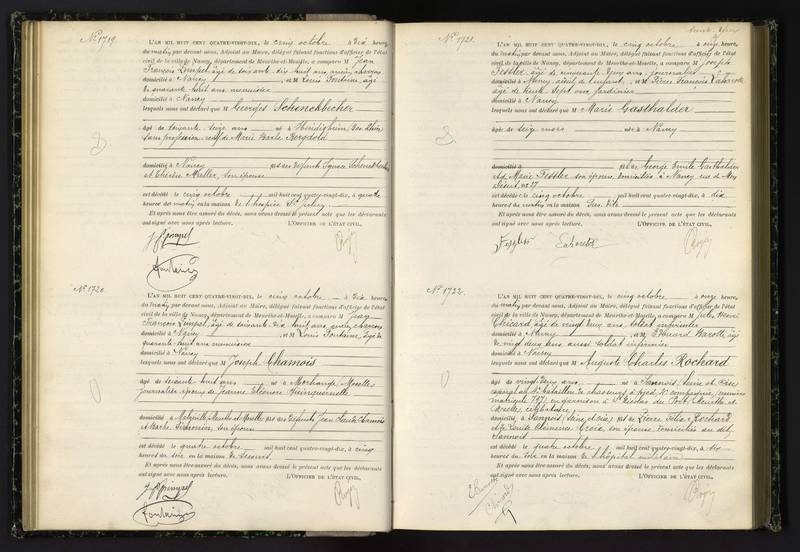 N° 1719.
L'AN MIL HUIT CENT QUATRE-VINGT-DIX, le cinq octobre à dix heures
du matin par devant nous, Adjoint au Maire, délégué faisant fonctions d'officier de l'état
civil de la ville de Nancy, département de Meurthe-et-Moselle, a comparu M Jean
François âgé de soixante dix huit ans ancien
domicilié à Nancy et M Louis Fontaine, âgé
de quarante huit ans menuisier
domicilié à Nancy
lesquels nous ont déclaré que M Georges Schenckbecher
âgé de soixante ans né à
sans profession, veuf de Marie Barbe
domicilié à Nancy fils des défunts Ignace
et Thérèse Muller, son épouse
est décédé le cinq octobre mil huit cent quatre-vingt-dix, à quatre
heures du matin en la maison de l'hospice St Julien
Et après nous être assuré du décès, nous avons dressé le présent acte que les déclarants
ont signé avec nous après lecture. L'OFFICIER DE L'ÉTAT CIVIL,
N° 1720.
L'AN MIL HUIT CENT QUATRE-VINGT-DIX, le cinq octobre à dix heures
du matin par devant nous, Adjoint au Maire, délégué faisant fonctions d'officier de l'état
civil de la ville de Nancy, département de Meurthe-et-Moselle, a comparu M Jean
François âgé de soixante dix huit ans ancien
domicilié à Nancy et M Louis Fontaine, âgé de
quarante huit ans menuisier
domicilié à Nancy
lesquels nous ont déclaré que M Joseph Chamois
âgé de soixante huit ans né à Morhange, Moselle,
journalier époux de Jeanne Éléonore
domicilié à Meurthe et Moselle fils des défunts Jean Claude Chamois
et Barbe son épouse
est décédé le quatre octobre mil huit cent quatre-vingt-dix, à cinq
heures du soir en la maison de secours
Et après nous être assuré du décès, nous avons dressé le présent acte que les déclarants
ont signé avec nous après lecture. L'OFFICIER DE L'ÉTAT CIVIL,
N° 1721.
L'AN MIL HUIT CENT QUATRE-VINGT-DIX, le cinq octobre à onze heures
du matin par devant nous, Adjoint au Maire, délégué faisant fonctions d'officier de l'état
civil de la ville de Nancy, département de Meurthe-et-Moselle, a comparu M Joseph
Fessler, âgé de cinquante ans, journalier
domicilié à Nancy, aïeul de l'enfant, et M Pierre François
âgé de trente sept ans, jardinier
domicilié à Nancy
lesquels nous ont déclaré que M Marie Gasthalder
âgée de seize mois née à Nancy
domiciliée à fille de George Emile Gasthalder
et de Marie Fessler son épouse, domiciliés à Nancy, rue de
N° 17
est décédée le cinq octobre mil huit cent quatre-vingt-dix, à dix
heures du matin en la maison
Et après nous être assuré du décès, nous avons dressé le présent acte que les déclarants
ont signé avec nous après lecture. L'OFFICIER DE L'ÉTAT CIVIL,
N° 1722.
L'AN MIL HUIT CENT QUATRE-VINGT-DIX, le cinq octobre à onze heures
du matin par devant nous, Adjoint au Maire, délégué faisant fonctions d'officier de l'état
civil de la ville de Nancy, département de Meurthe-et-Moselle, a comparu M Jules Henri
âgé de vingt deux ans, soldat infirmier
domicilié à Nancy et M Edouard âgé
de vingt deux ans aussi soldat infirmier
domicilié à Nancy
lesquels nous ont déclaré que M Auguste Charles Rochard
âgé de vingt deux ans né à Sannois, Seine et Oise
caporal au bataillon de chasseurs à pied, compagnie, numéro
matricule en garnison à St Nicolas du Port, Meurthe et
Moselle, célibataire,
domicilié à Sannois, (Seine et Oise), fils de Pierre Félix Rochard
et de Louise Clémence son épouse domiciliés au dit
Sannois
est décédé le quatre octobre mil huit cent quatre-vingt-dix, à six
heures du soir en la maison de l'hôpital militaire
Et après nous être assuré du décès, nous avons dressé le présent acte que les déclarants
ont signé avec nous après lecture. L'OFFICIER DE L'ÉTAT CIVIL,